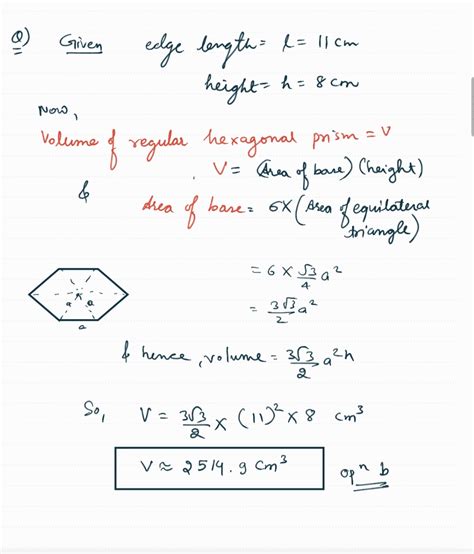 Q) Given edge length = l = 11 cm
height = h = 8 cm
Now,
Volume of regular hexagonal prism = V
V = (Area of base) (height)
& Area of base = 6 x (Area of equilateral triangle)
= 6 x √3/4 a²
a a
a
= 3√3/2 a²
& hence, volume = 3√3/2 a²h
So, V = 3√3/2 x (11)² x 8 cm³
V ≈ 2514.9 cm³
opⁿ b